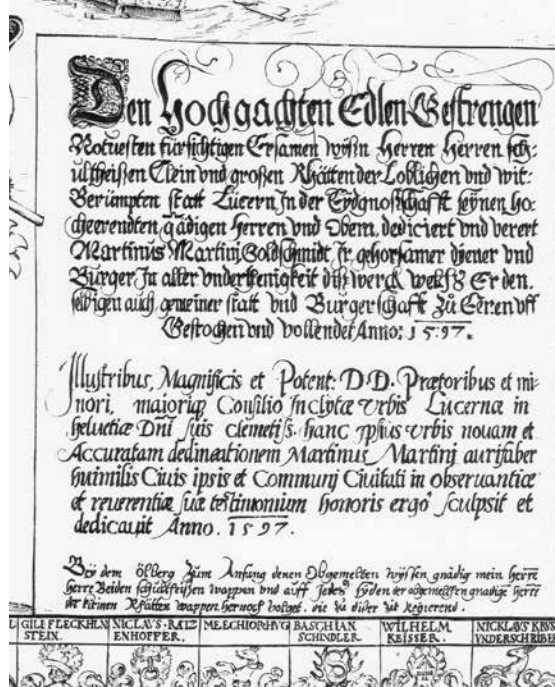 Den Hochgachten Edlen Gestrengen
Notuesten fürsichtigen Ersamen wÿsn Herren Herren sch:
ultheißen Clein vnd großen Rhätten der Loblichen vnd wit:
Berümpten statt Lucern Jn der Eydgnosschafft seÿnen ho:
cheerendten gädigen Herren vnd Obern, dediciert vnd verert
Martinus Martinj Goldschmidt Jr gehorsamer dÿener vnd
Burger Jn aller vnderthenigkeit diß werck welchs Er den.
selbigen auch gemeiner statt vnd Burgerschafft Zu Eeren vff
Gestochen vnd vollendet Anno: 1597.
Illustribus, Magnificis et Potent: D.D. Prætoribus et mi-
nori, maioriq Consilio Inclytæ vrbis Lucernæ in
helvetiæ Dnī suis clemetiſs. hanc ipsius vrbis nouam et
Accuratam dedineationem Martinus Martinj aurifaber
humilis Ciuis ipsis et Communj Ciuitati in obseruantiæ
et reuerentiæ suæ testimonium honoris ergo sculpsit et
dedicauit Anno. 1597.
Beÿ dem ölberg Zum Anfang denen Obgemelten wÿsen gnädig mein herre
herre Beiden schultheissen wappen vnd auff Jedes der obgemelten gnädige herre
der kleinen Rhätten wappen hernoch volget. die Zu diser Zit Regierend.
GILI FLECKHLN NICLAVS·RATZ MELCHIOR HVG BASCHIAN WILHELM NICKLAVS KRVS
STEIN. ENHOFFER. SCHINDLER KEISSER. VNDERSCHRIBER